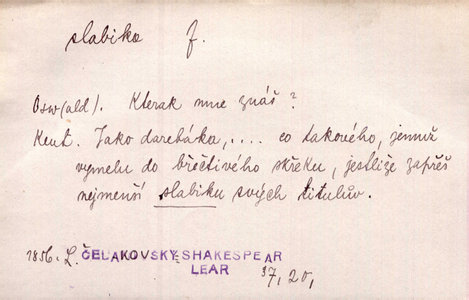 slabika f.
Osw(ald). Kterak mne znáš?
Kent. Jako darebáka, .... co takového, jemuž
vymelu do břečtivého skřeku, jestliže zapřeš
nejmenší slabiku svých titulův.
1856. L. ČELAKOVSKÝ-SHAKESPEAR
LEAR 37, 20,